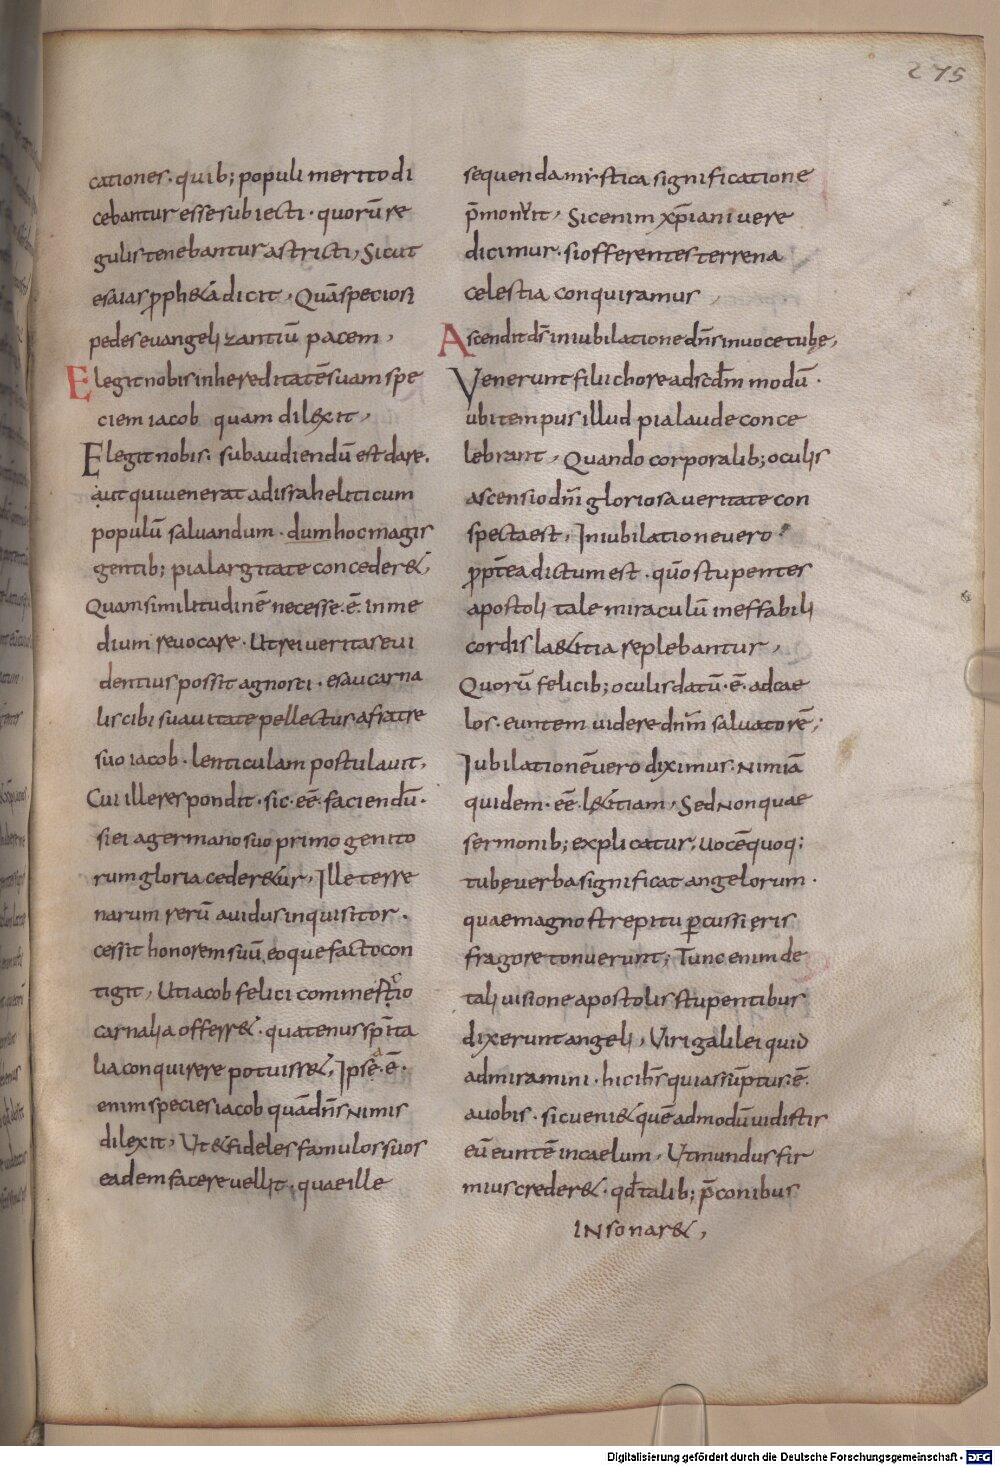 275
cationes. quib; populi merito di
cebantur esse subiecti. quorū re
gulis tenebantur astricti, Sicut
esaias p̱ph&a dicit, Quā speciosi
pedes euangelizantiū pacem,
Elegit nobis in hereditatē suam spe
ciem iacob quam dilexit,
Elegit nobis. subaudiendū est dare.
aut qui uenerat ad israheliticum
populū saluandum. dum hoc magis
gentib; pia largitate conceder&,
Quam similitudinē necesse .ē. in me
dium reuocare. Ut rei ueritas eui
dentius possit agnosci. esau carna
lis cibi suauitate pellectus a fratre
suo iacob. lenticulam postulauit,
Cui ille respondit. sic .eē. faciendū.
si ei a germano suo primogenito
rum gloria ceder&ur, Ille terre
narum rerū auidus inquisitor.
cessit honorem suū, eoque facto con
tigit, Ut iacob felici commercio
carnalia offerr&. quatenus sp̄ita
lia conquirere potuiss&, Ipsa .ē.
enim species iacob quā dn̄s nimis
dilexit, Ut & fideles famulos suos
eadem facere vellit. quae ille
sequenda mystica significatione
p̄monuit, Sic enim xp̄iani uere
dicimur. si offerentes terrena
celestia conquiramus
Ascendit ds̄ in iubilatione dn̄s in uoce tubę,
Venerunt filii chore ad scd̄m modū.
ubi tempus illud pia laude conce
lebrant, Quando corporalib; oculis
ascensio dn̄i gloriosa ueritate con
specta est, In iubilatione uero
p̱pterea dictum est. qūo stupentes
apostoli tale miraculū ineffabili
cordis la&itia replebantur,
Quorū felicib; oculis datū .ē. ad cae
los. euntem uidere dn̄m saluatorē;
Iubilationē uero diximus. nimiā
quidem .eē. l&itiam, Sed non quae
sermonib; explicatur, uocē quoq;
tubę uerba significat angelorum.
quae magno strepitu p̱cussi ęris
fragore tonuerunt; Tunc enim de
tali uisione apostolis stupentibus
dixerunt angeli, Viri galilei quid
admiramini. hic ih̄s qui assūptus .ē.
a uobis. sic ueni& quē admodū uidistis
eū euntē in caelum, Ut mundus fir
mius creder&. qd̄ talib; p̄conibus
insonar&,
Digitalisierung gefördert durch die Deutsche Forschungsgemeinschaft - DFG